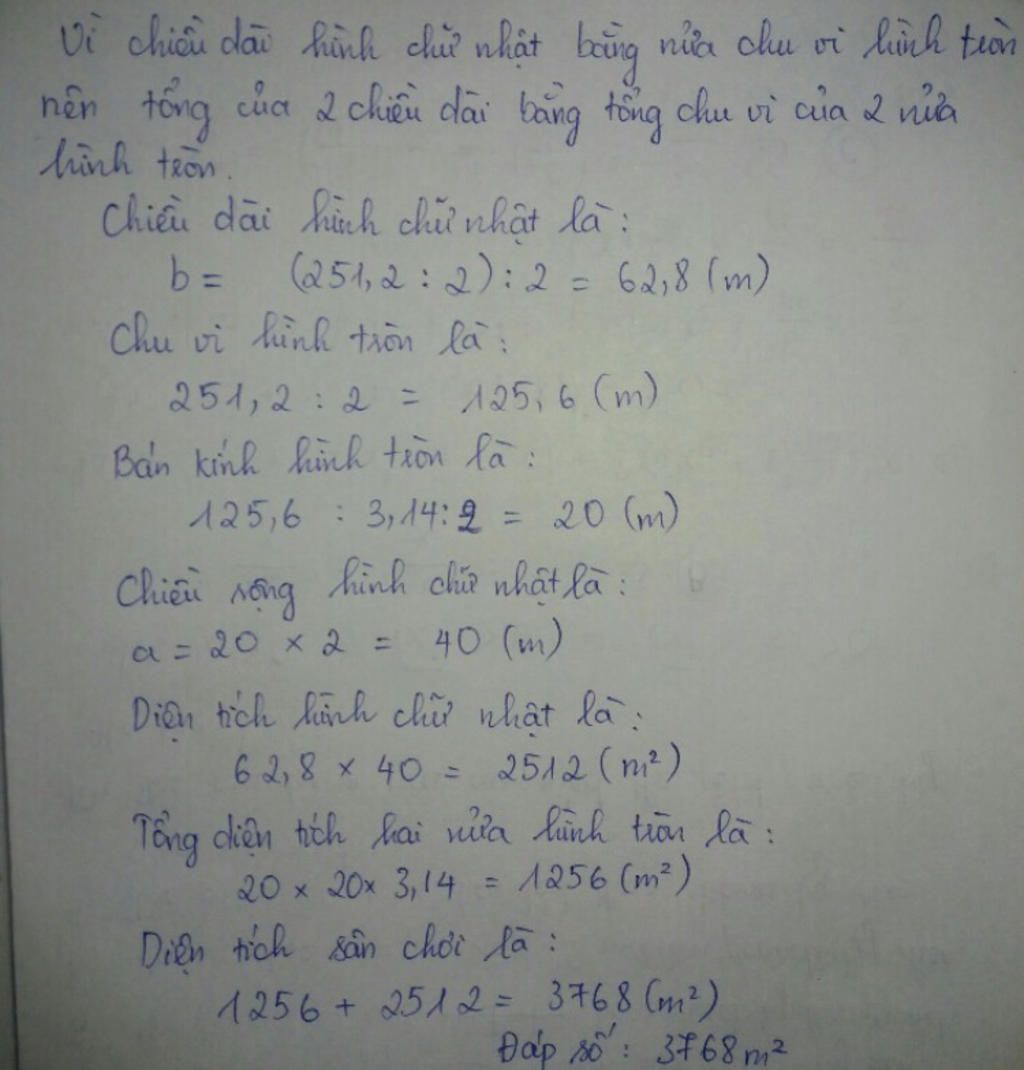 Vì chiều dài hình chữ nhật bằng nửa chu vi hình tròn
nên tổng của 2 chiều dài bằng tổng chu vi của 2 nửa
hình tròn.
Chiều dài hình chữ nhật là:
b = (251,2 : 2) : 2 = 62,8 (m)
Chu vi hình tròn là:
251,2 : 2 = 125,6 (m)
Bán kính hình tròn là:
125,6 : 3,14 : 2 = 20 (m)
Chiều rộng hình chữ nhật là:
a = 20 × 2 = 40 (m)
Diện tích hình chữ nhật là:
62,8 × 40 = 2512 (m²)
Tổng diện tích hai nửa hình tròn là:
20 × 20 × 3,14 = 1256 (m²)
Diện tích sân chơi là:
1256 + 2512 = 3768 (m²)
Đáp số: 3768 m²